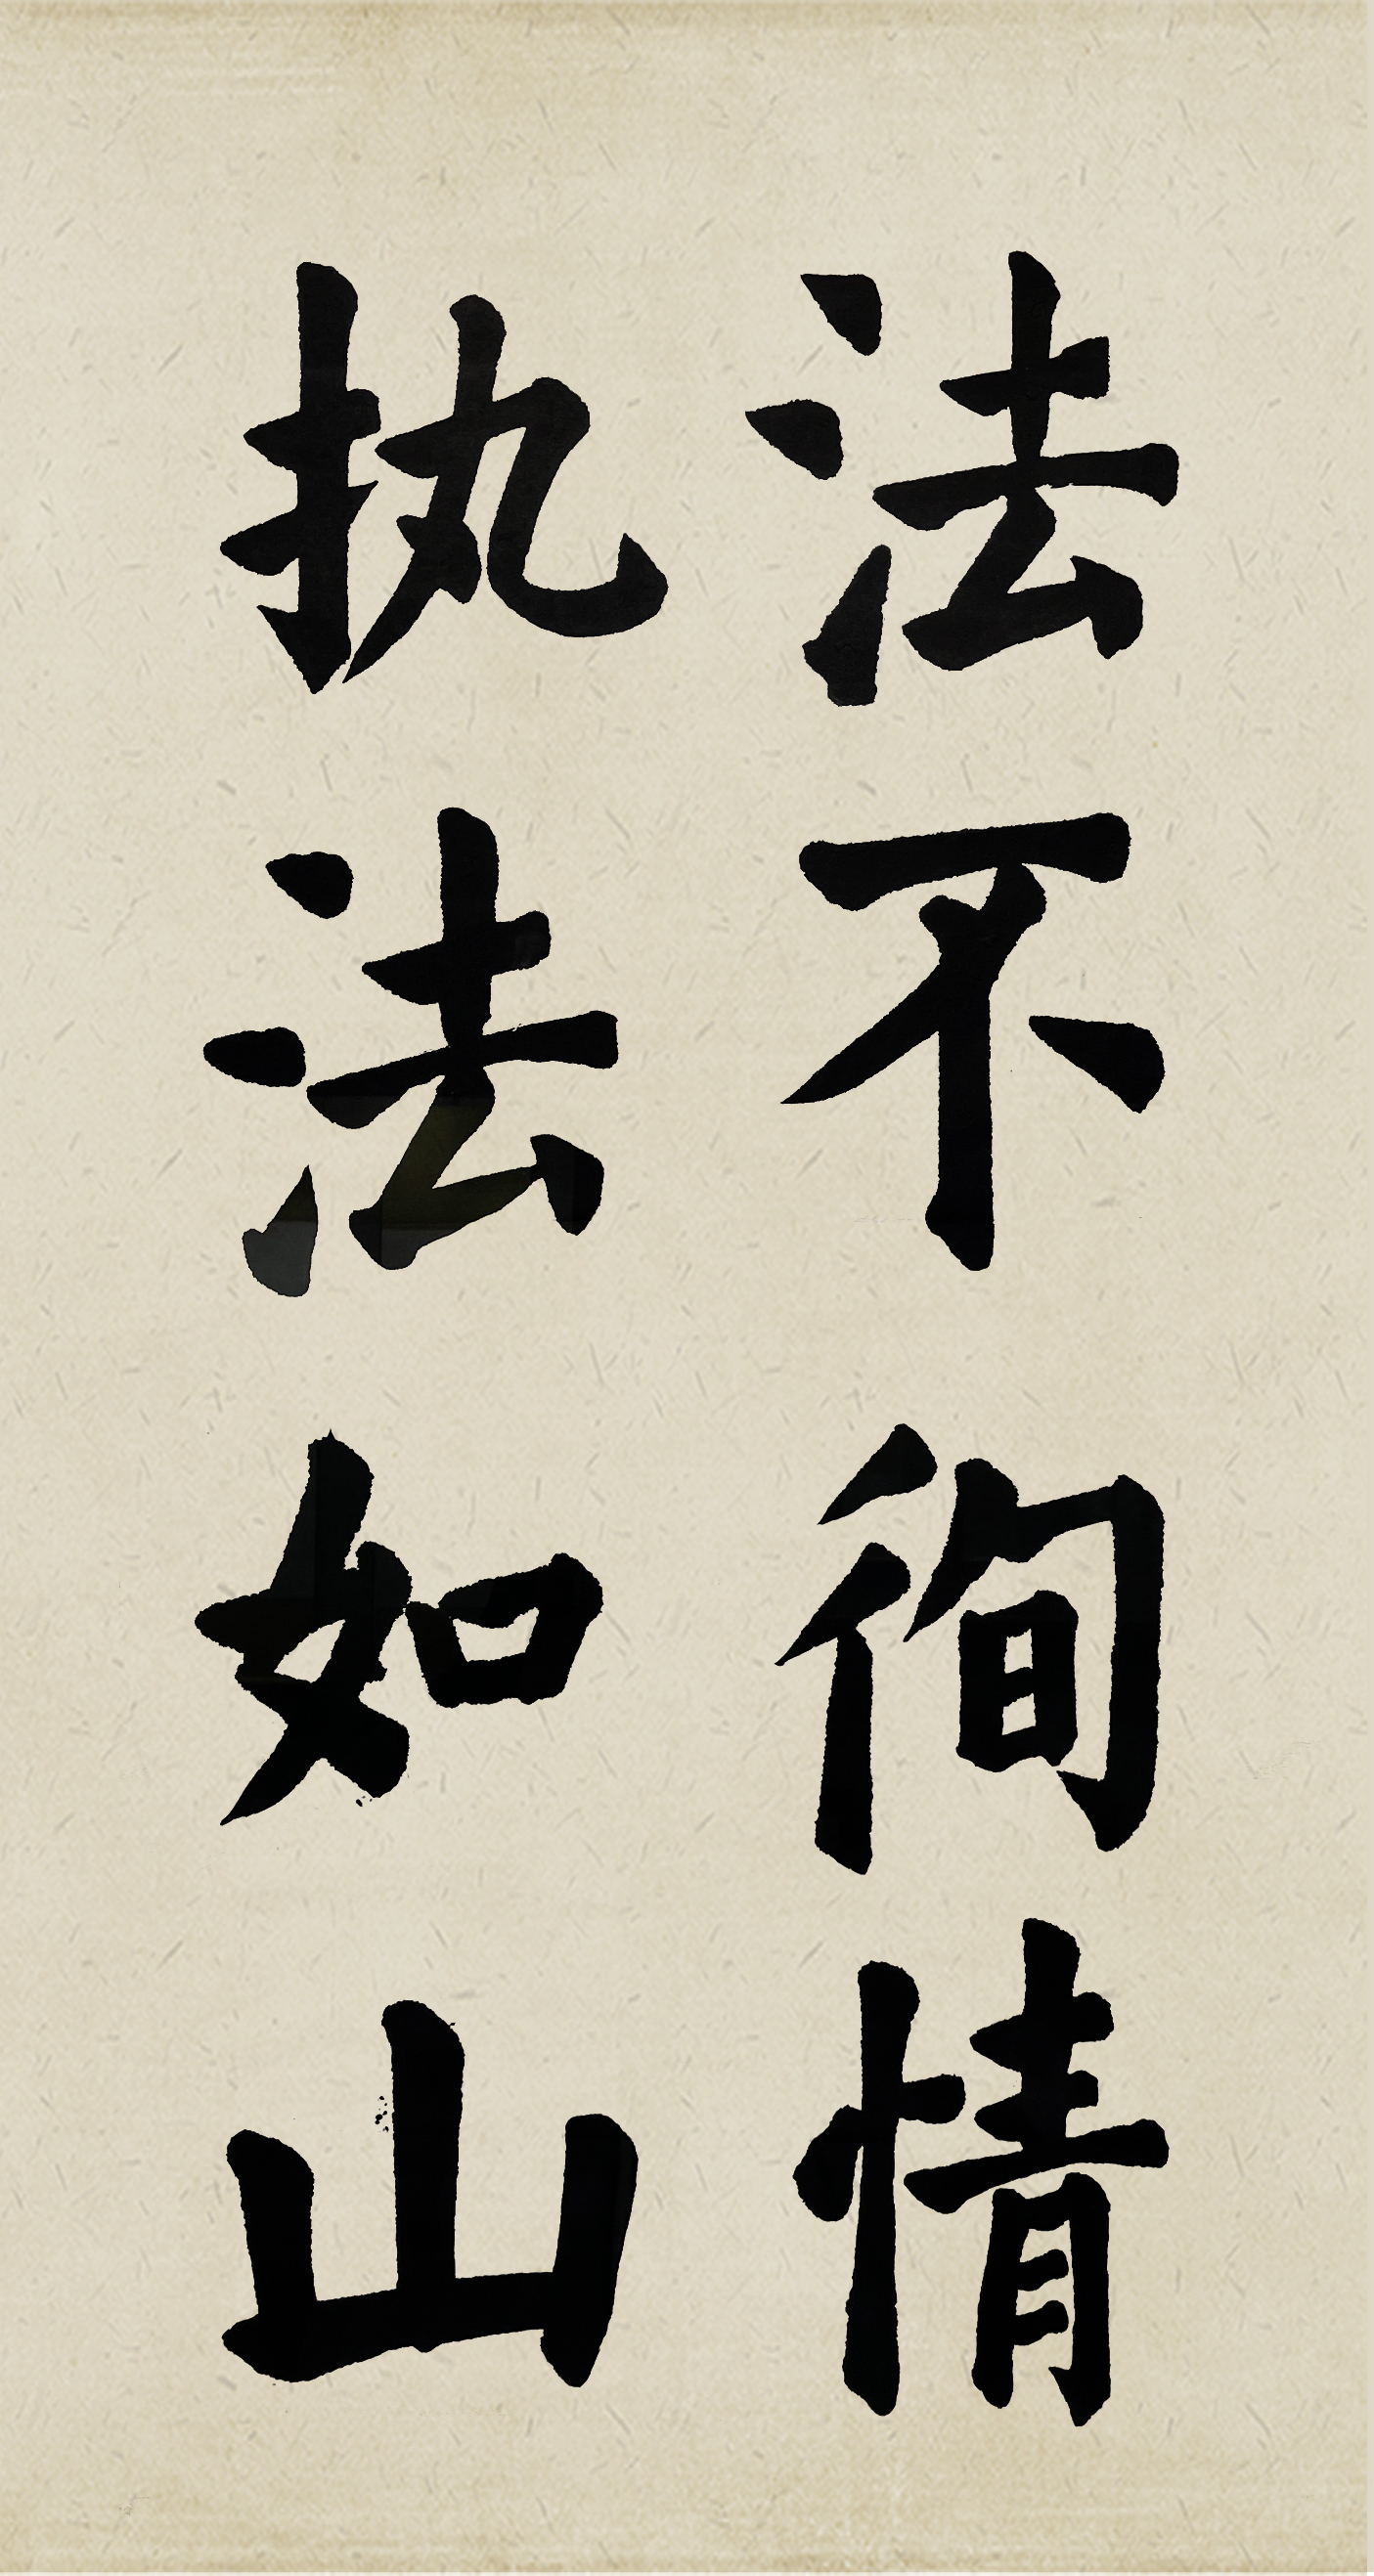 法不徇情
执法如山